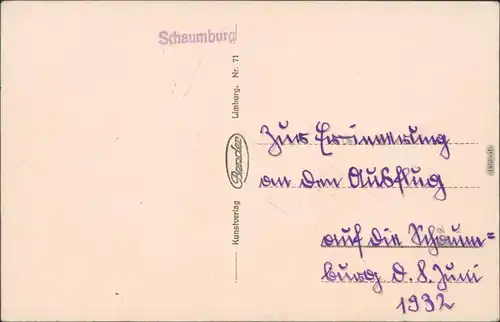 Schaumburg
Kunstverlag Bender Limburg. Nr. 71
Zur Erinnerung
an den Ausflug
auf die Schaum=
burg d. 8. Juni
1932